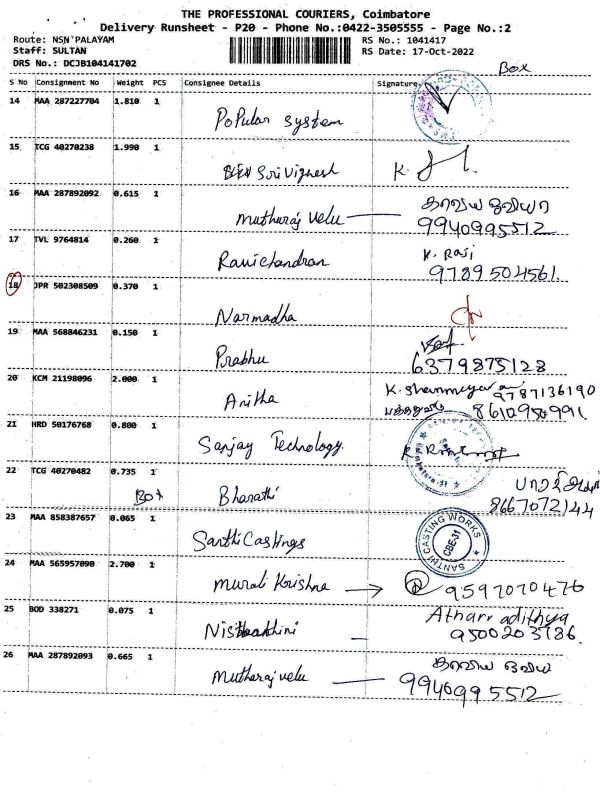 THE PROFESSIONAL COURIERS, Coimbatore
Delivery Runsheet - P20 - Phone No.:0422-3505555 - Page No.:2
Route: NSN PALAYAM
RS No.: 1041417
Staff: SULTAN
RS Date: 17-Oct-2022
DRS No.: DCJB104141702
Box
S No Consignment No Weight PCS Consignee Details Signature
14 MAA 287227704 1.810 1
Popular System
15 TCG 40270238 1.990 1
Sri Vignesh K.
16 MAA 287892092 0.615 1
Muthuraj velu காவிய ஓவியா
9940995512
17 TVL 9764814 0.260 1 K. Raji
Ravichandran 9789504561.
18 JPR 502308509 0.370 1
Narmadha
19 MAA 568846231 0.150 1
Prabhu 6379875128
20 KCM 21198096 2.000 1 9787136190
Anitha 8610950991
21 HRD 50176768 0.800 1
Sanjay Technology.
22 TCG 40270482 0.735 1
Box Bharathi 8667072144
23 MAA 858387657 0.065 1
Santhi Castings SANTHI CASTING WORKS CBE-31
24 MAA 565957090 2.700 1
Murali Krishna 9597070476
25 BOD 338271 0.075 1 Atharv adithya
9500203786.
26 MAA 287892093 0.665 1 காவிய ஓவிய
Muthuraj velu 9940995512